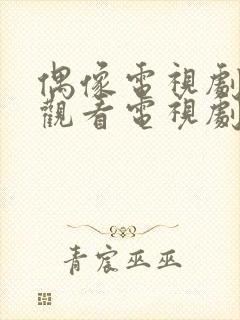 偶像電視劇
觀看電視劇
青宸巫巫